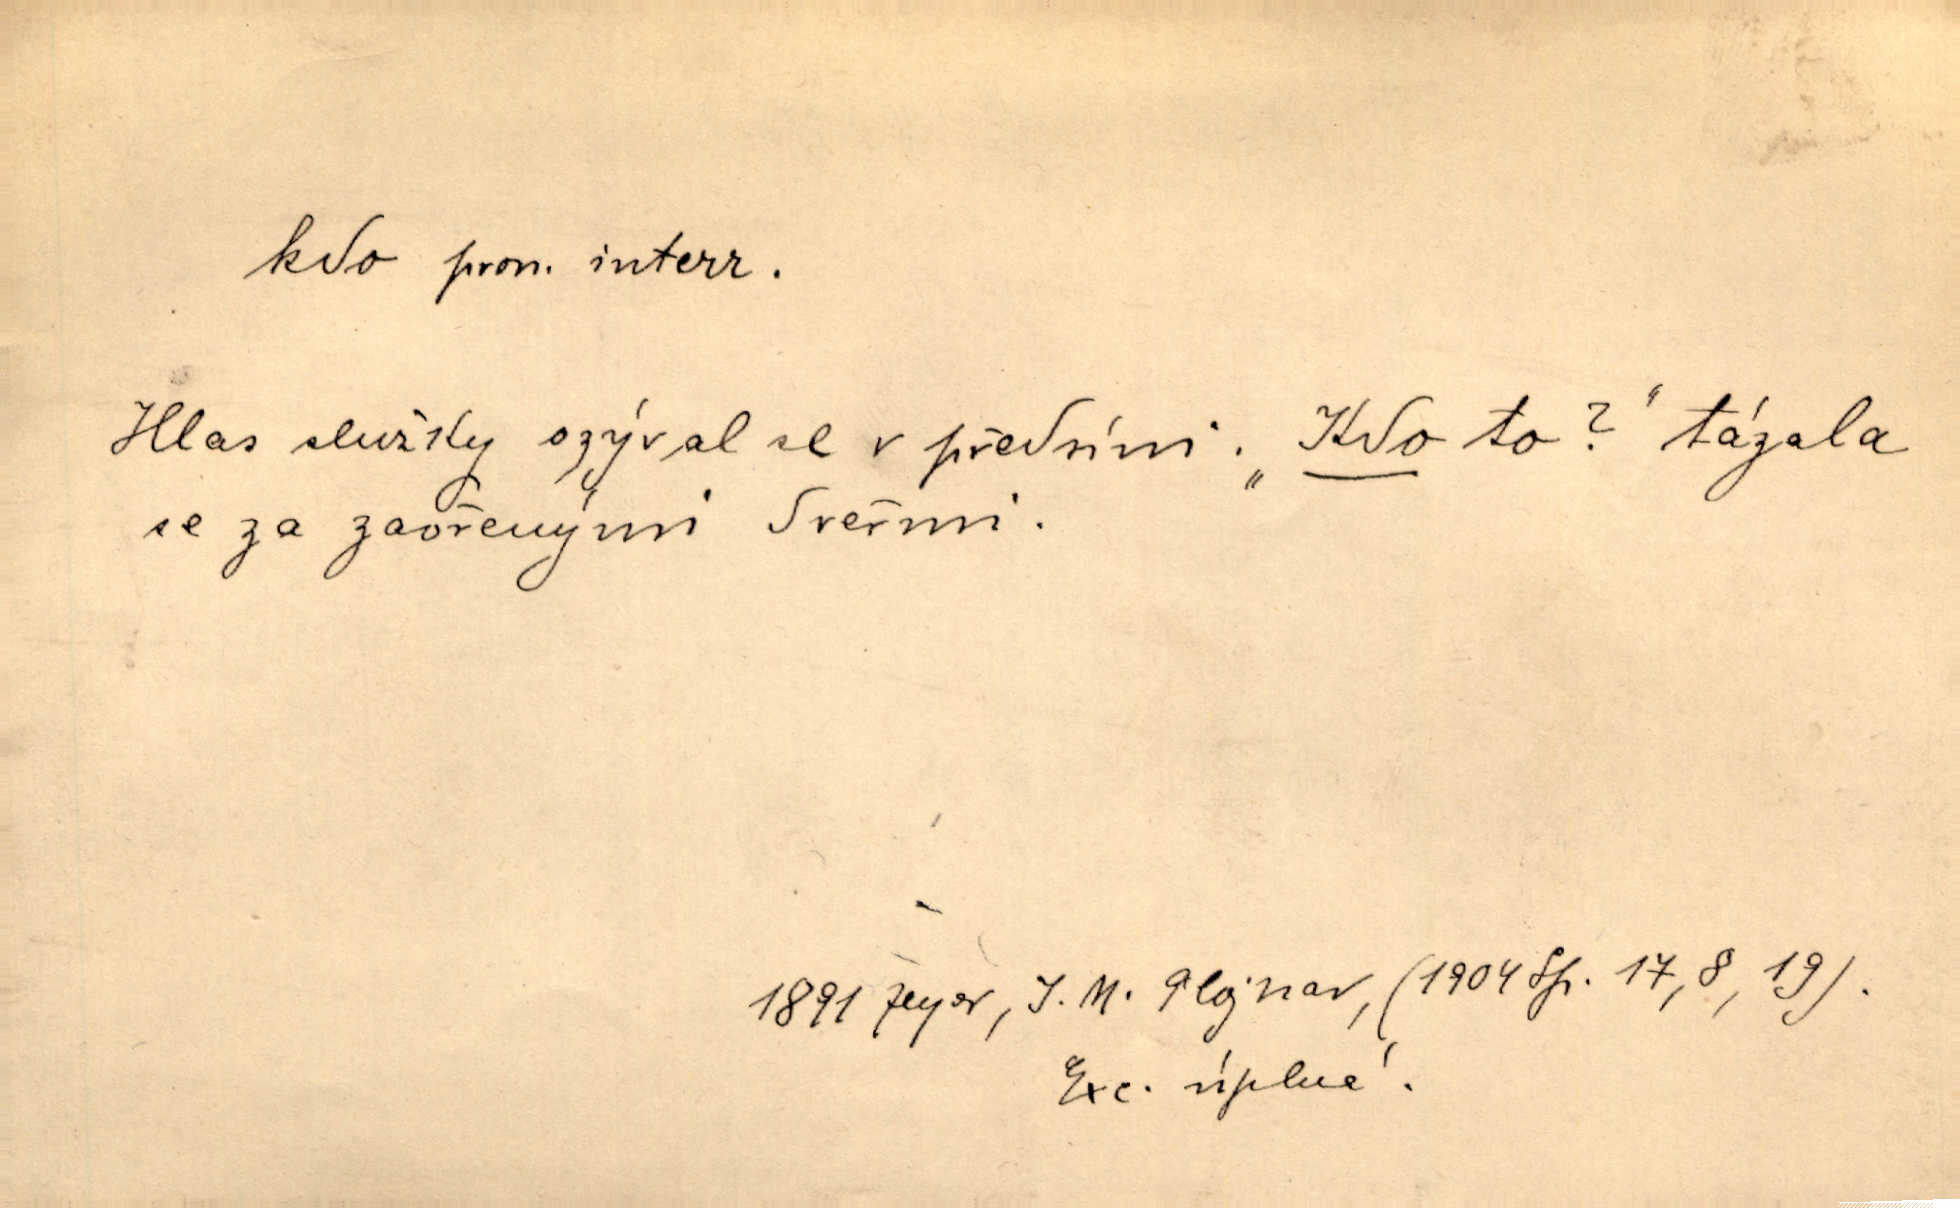 kdo pron. interr.
Hlas služky ozýval se v předsíni. „Kdo to?“ tázala
se za zavřenými dveřmi.
1891 Zeyer, J. M. Plojhar, (1904 Sp. 17, 8, 19).
Exc. úplné.